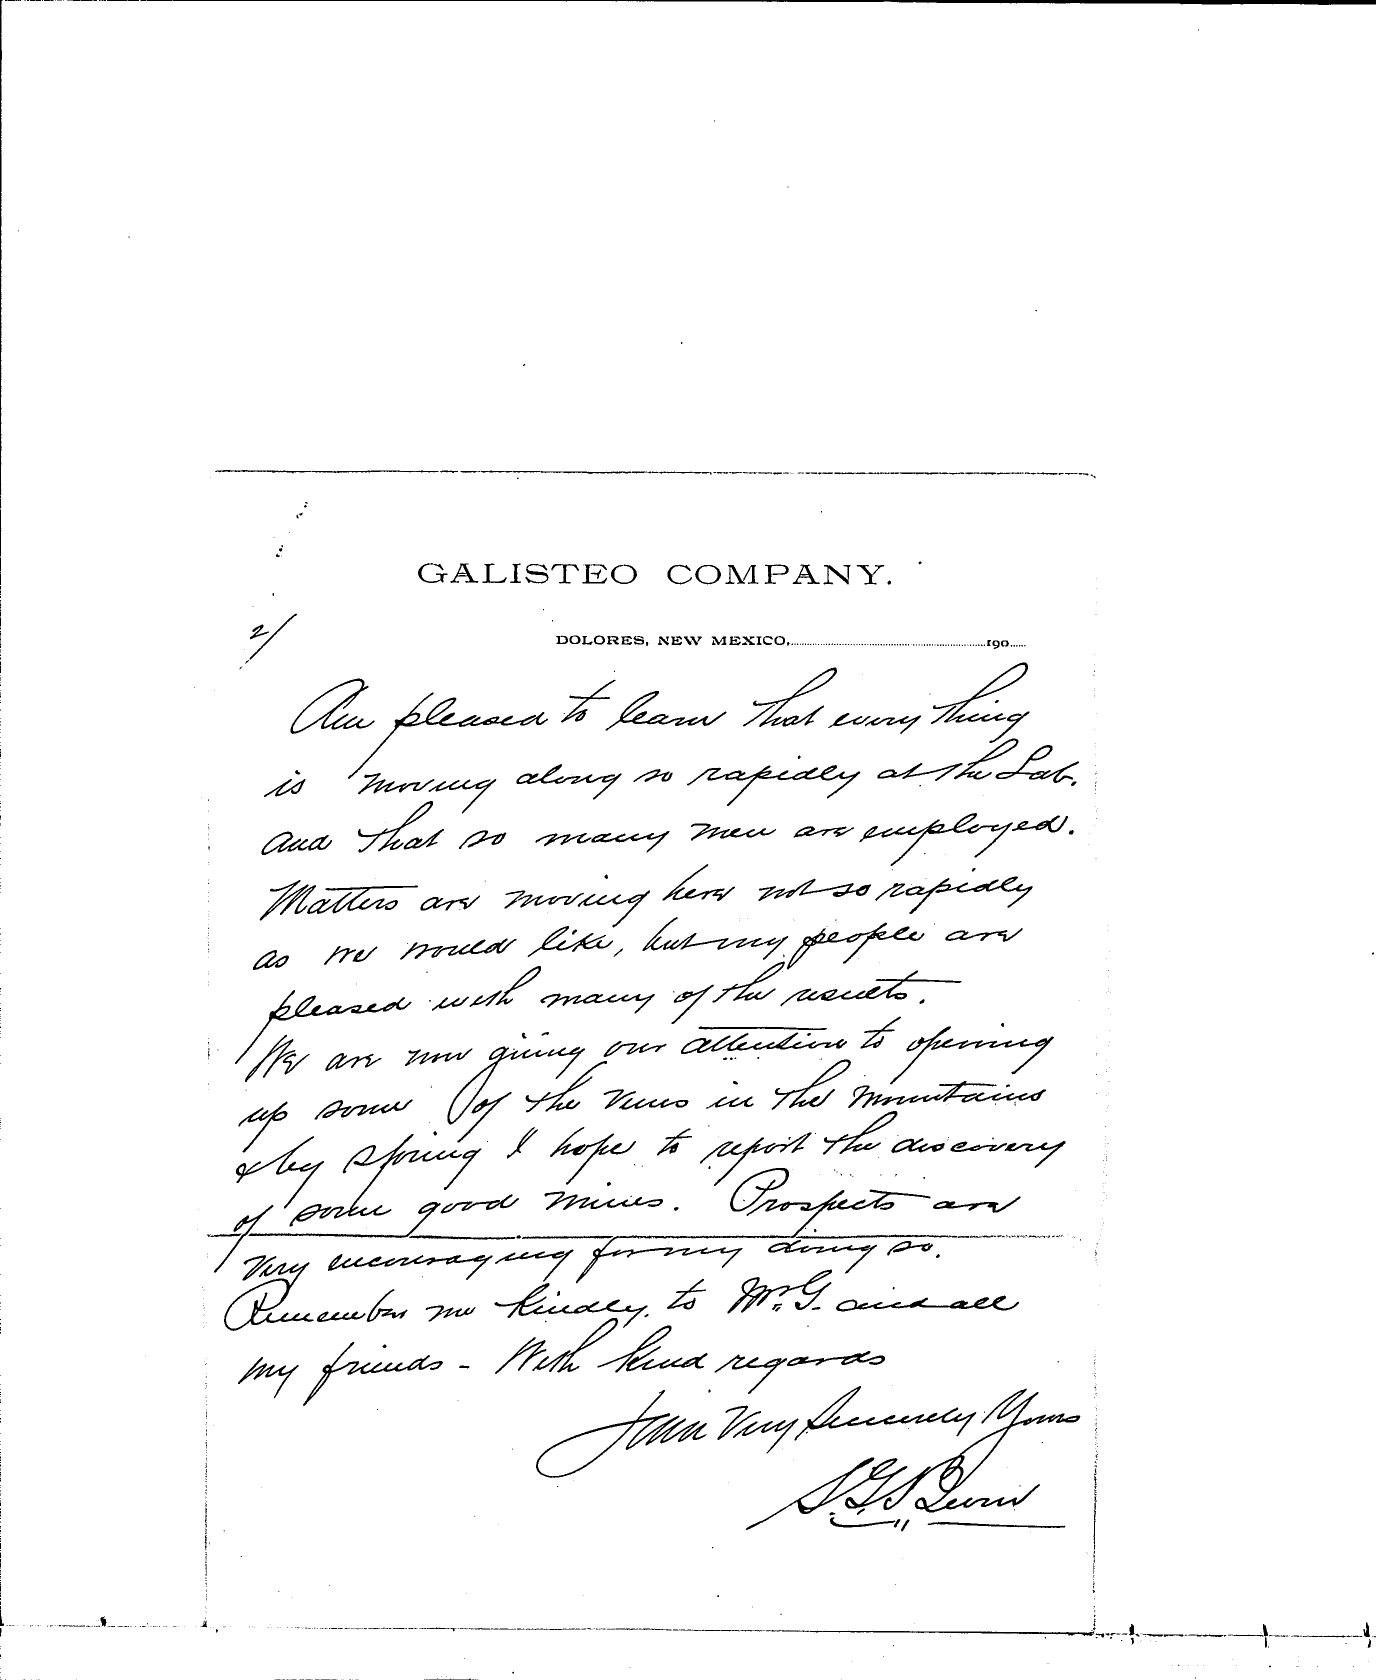 GALISTEO COMPANY.
2/
DOLORES, NEW MEXICO, 190
Am pleased to learn that every thing
is moving along so rapidly at the Lab.
and that so many men are employed.
Matters are moving here not so rapidly
as we would like, but my people are
pleased with many of the results.
We are now giving our attention to opening
up some of the veins in the mountains
& by spring I hope to report the discovery
of some good mines. Prospects are
very encouraging for my doing so.
Remember me kindly to Mr. G. and all
my friends - With kind regards
I am Very Sincerely Yours
S. G.